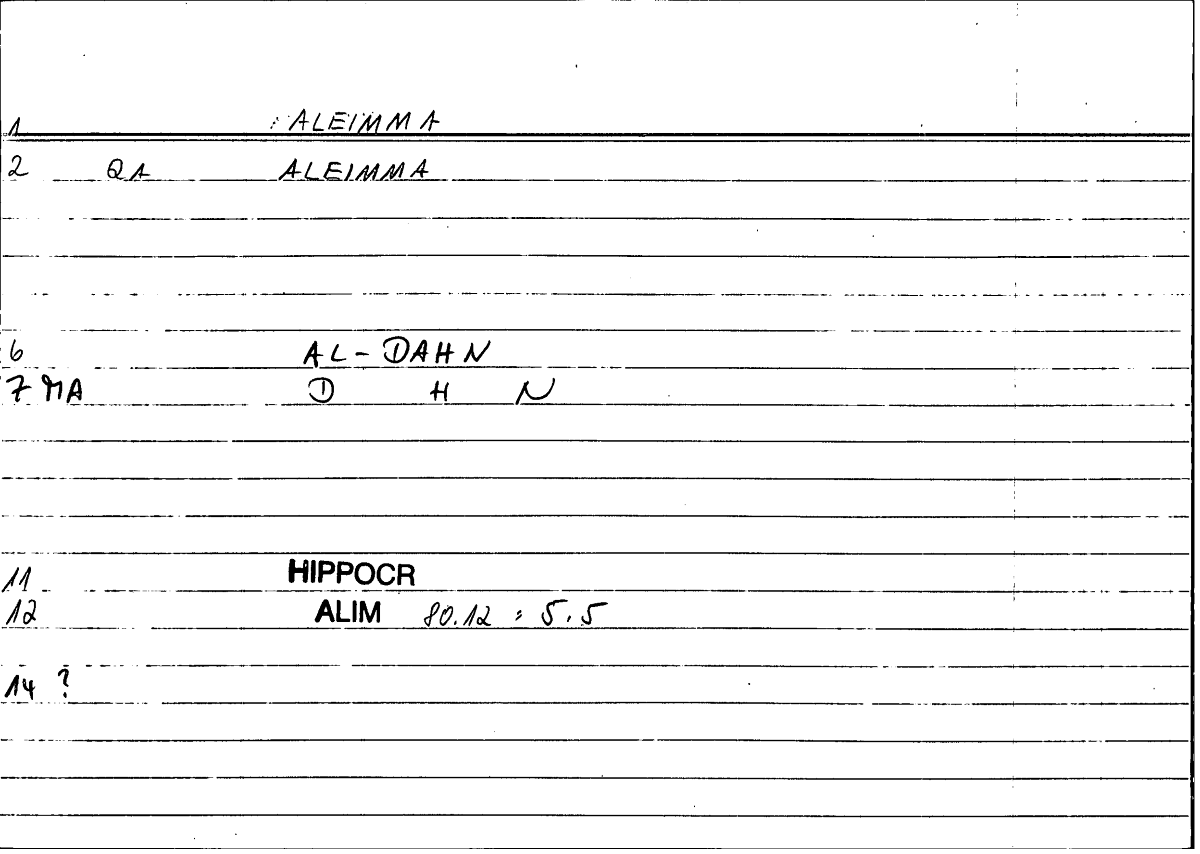 1 ALEIMMA
2 QA ALEIMMA
6 AL-DAHN
7 MA D H N
11 HIPPOCR
12 ALIM 80.12 = 5.5
14 ?